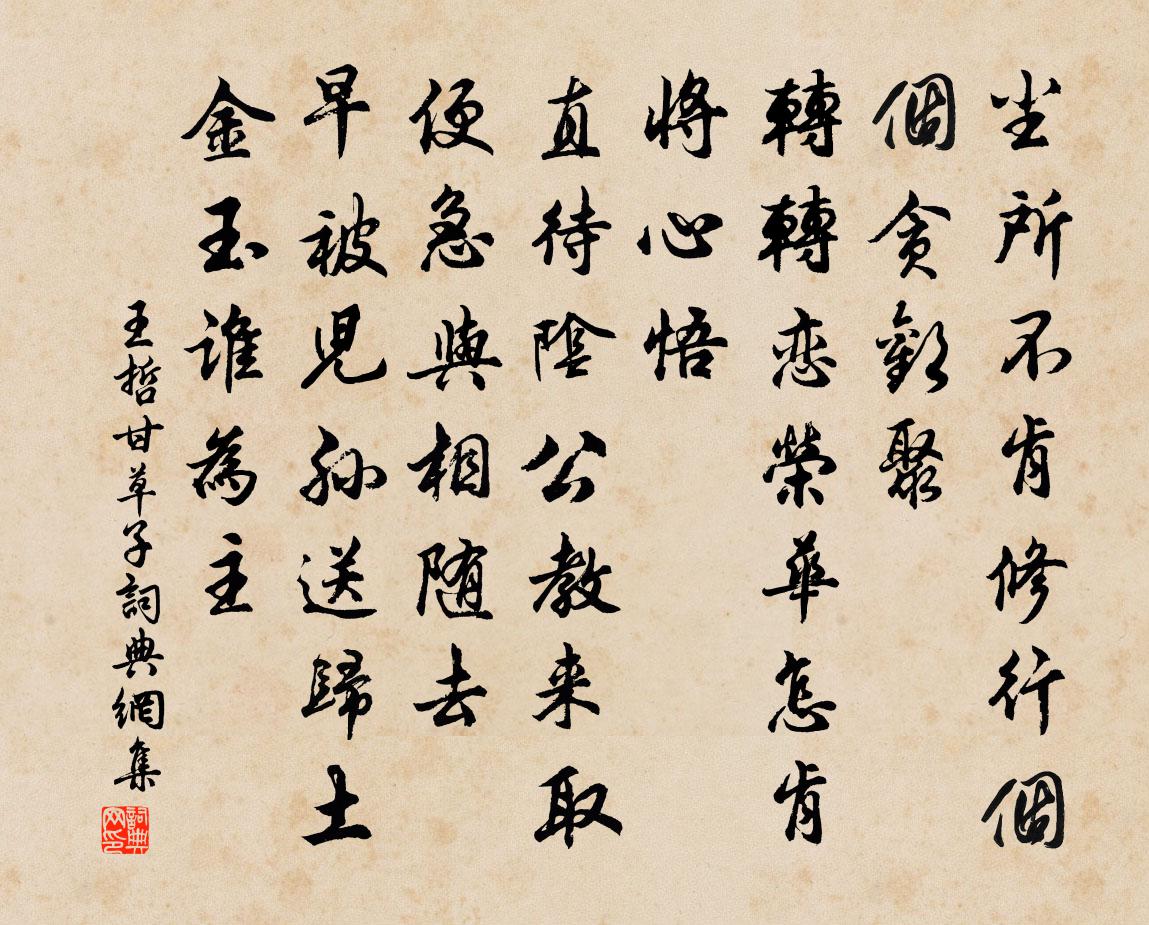 尘所不肯修行個
個貪歡聚
轉轉恋榮華怎肯
將心悟
直待陰公教来取
便急與相随去
早被兒孫送歸土
金玉誰為主
王哲甘草子詞典網集
詞典网印